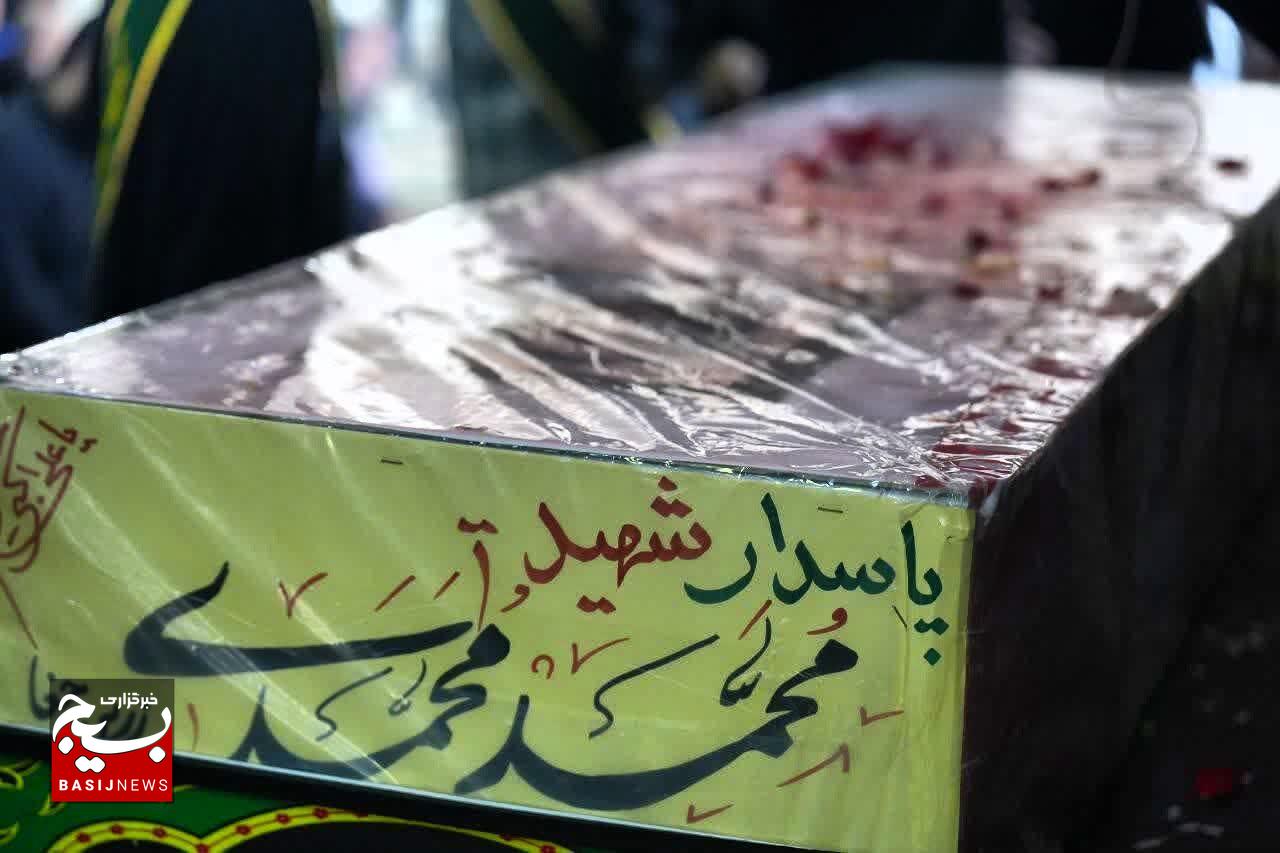 پاسدار شهید
محمد محمدی
یا علی اکبر
خبرگزاری
بسیج
BASIJNEWS